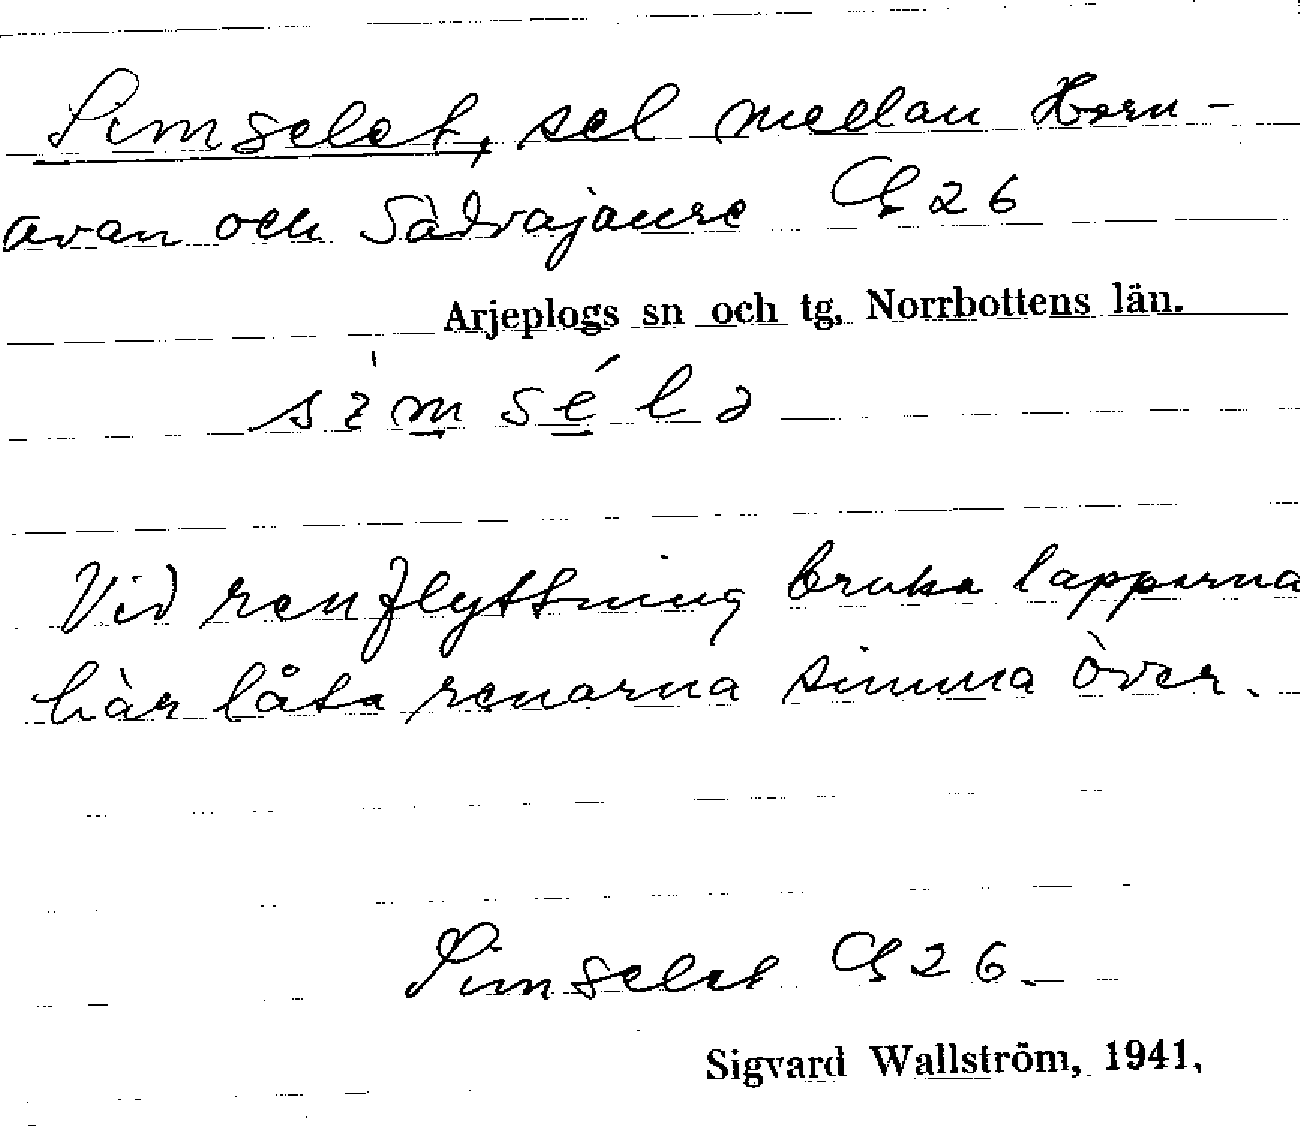 Simselet, sel mellan Horn-
avan och Sädvajaure G 26
Arjeplogs sn och tg, Norrbottens län.
Vid renflyttning bruka lapparna
här låta renarna simma över.
Simselet G 26
Sigvard Wallström, 1941.